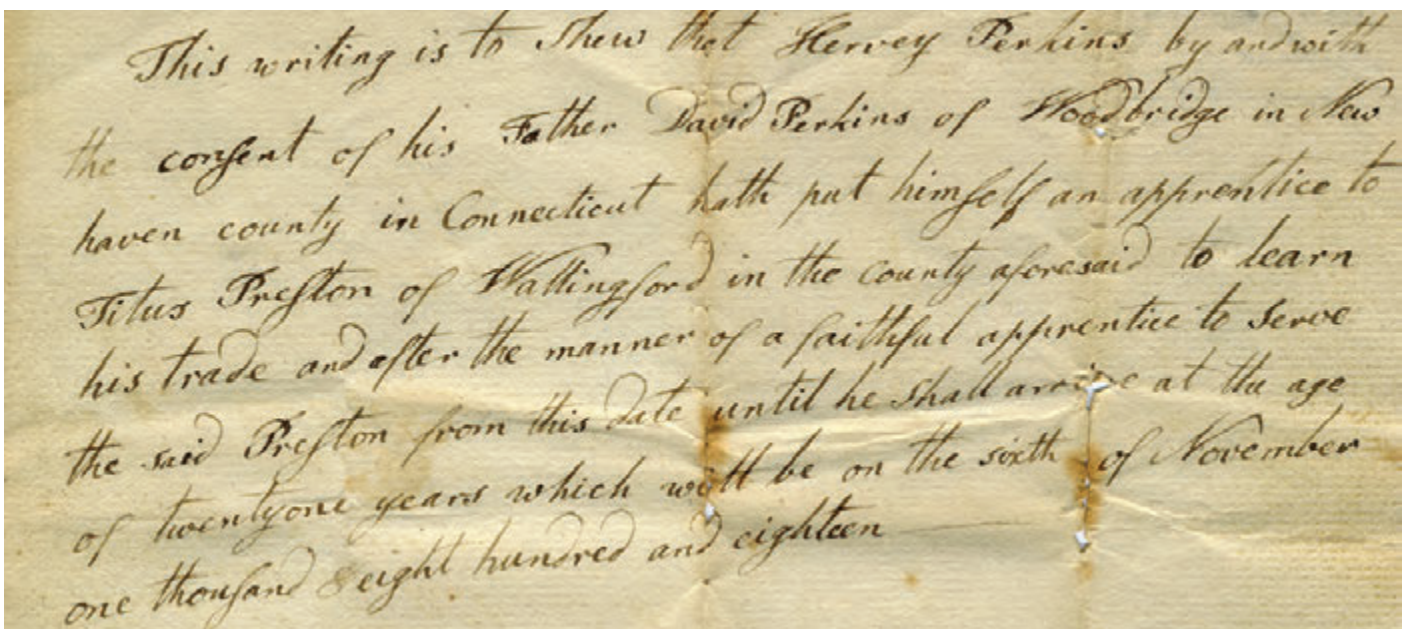 This writing is to shew that Hervey Perkins by and with
the conſent of his Father David Perkins of Woodbridge in New
haven county in Connecticut hath put himſelf an apprentice to
Titus Preſton of Wallingford in the county aforesaid to learn
his trade and after the manner of a faithful apprentice to serve
the said Preſton from this date until he shall arrive at the age
of twentyone years which will be on the sixth of November
one thouſand eight hundred and eighteen